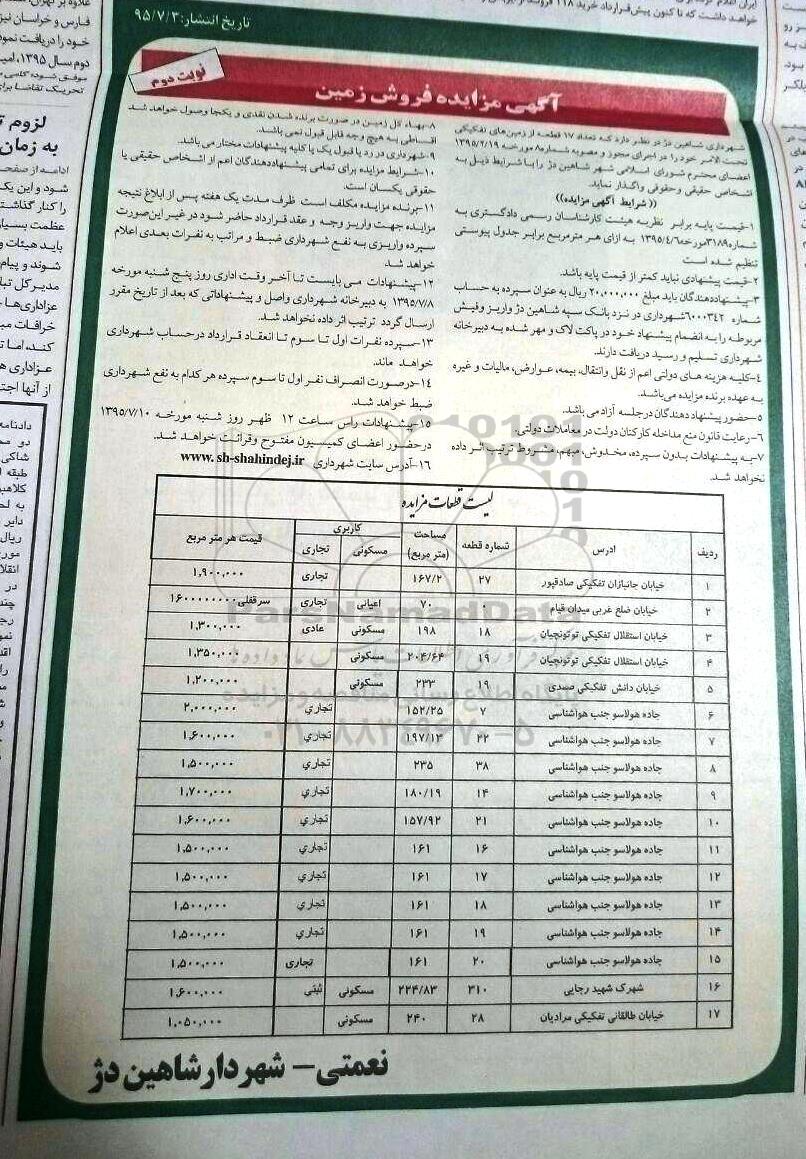 تاریخ انتشار: ۹۵/۷/۳
نوبت دوم
آگهی مزایده فروش زمین
شهرداری شاهین دژ در نظر دارد که تعداد ۱۷ قطعه از زمین‌های تفکیکی
تحت الامر خود را در اجرای مجوز و مصوبه شماره۸ مورخه ۱۳۹۵/۲/۱۹
اعضای محترم شورای اسلامی شهر شاهین دژ را با شرایط ذیل به
اشخاص حقیقی وحقوقی واگذار نماید.
(( شرایط آگهی مزایده))
۱-قیمت پایه برابر نظریه هیئت کارشناسان رسمی دادگستری به
شماره۳۱۸۹مورخه۱۳۹۵/۴/۶ به ازای هر مترمربع برابر جدول پیوستی
تنظیم شده است
۲-قیمت پیشنهادی نباید کمتر از قیمت پایه باشد.
۳-پیشنهاددهندگان باید مبلغ ۲۰،۰۰۰،۰۰۰ ریال به عنوان سپرده به حساب
شماره ۶۰۰۰۳۴۲شهرداری در نزد بانک سپه شاهین دژ واریز وفیش
مربوطه را به انضمام پیشنهاد خود در پاکت لاک و مهر شده به دبیرخانه
شهرداری تسلیم و رسید دریافت دارند.
۴-کلیه هزینه های دولتی اعم از نقل وانتقال، بیمه، عوارض، مالیات و غیره
به عهده برنده مزایده می‌باشد.
۵-حضور پیشنهاد دهندگان درجلسه آزاد می باشد.
۶-رعایت قانون منع مداخله کارکنان دولت در معاملات دولتی.
۷-به پیشنهادات بدون سپرده، مخدوش، مبهم، مشروط ترتیب اثر داده
نخواهد شد.
۸-بهاء کل زمین در صورت برنده شدن نقدی و یکجا وصول خواهد شد
اقساطی به هیچ وجه قابل قبول نمی باشد.
۹-شهرداری در رد یا قبول یک یا کلیه پیشنهادات مختار می باشد.
۱۰-شرایط مزایده برای تمامی پیشنهاددهندگان اعم از اشخاص حقیقی یا
حقوقی یکسان است.
۱۱-برنده مزایده مکلف است ظرف مدت یک هفته پس از ابلاغ نتیجه
مزایده جهت واریز وجه و عقد قرارداد حاضر شود در غیر این‌صورت
سپرده واریزی به نفع شهرداری ضبط و مراتب به نفرات بعدی اعلام
خواهد شد
۱۲-پیشنهادات می بایست تا آخر وقت اداری روز پنج شنبه مورخه
۱۳۹۵/۷/۸ به دبیرخانه شهرداری واصل و پیشنهاداتی که بعد از تاریخ مقرر
ارسال گردد ترتیب اثر داده نخواهد شد.
۱۳-سپرده نفرات اول تا سوم تا انعقاد قرارداد درحساب شهرداری
خواهد ماند.
۱۴-درصورت انصراف نفر اول تا سوم سپرده هر کدام به نفع شهرداری
ضبط خواهد شد.
۱۵-پیشنهادات راس ساعت ۱۲ ظهر روز شنبه مورخه ۱۳۹۵/۷/۱۰
درحضور اعضای کمیسیون مفتوح وقرائت خواهد شد.
۱۶-آدرس سایت شهرداری www.sh-shahindej.ir
لیست قطعات مزایده
ردیف ادرس شماره قطعه مساحت (متر مربع) کاربری مسکونی تجاری قیمت هر متر مربع
۱ خیابان جانبازان تفکیکی صادقپور ۲۷ ۱۶۷/۲ تجاری ۱،۹۰۰،۰۰۰
۲ خیابان ضلع غربی میدان قیام ۷۰ اعیانی تجاری سرقفلی۱۶۰۰۰۰۰۰۰۰
۳ خیابان استقلال تفکیکی توتونچیان ۱۸ ۱۹۸ مسکونی عادی ۱،۳۰۰،۰۰۰
۴ خیابان استقلال تفکیکی توتونچیان ۱۹ ۲۰۴/۶۴ مسکونی ۱،۳۵۰،۰۰۰
۵ خیابان دانش تفکیکی صمدی ۱۹ ۲۳۳ مسکونی ۱،۲۰۰،۰۰۰
۶ جاده هولاسو جنب هواشناسی ۷ ۱۵۲/۲۵ تجاری ۲،۰۰۰،۰۰۰
۷ جاده هولاسو جنب هواشناسی ۲۲ ۱۹۷/۱۳ تجاری ۱،۶۰۰،۰۰۰
۸ جاده هولاسو جنب هواشناسی ۳۸ ۲۳۵ تجاری ۱،۵۰۰،۰۰۰
۹ جاده هولاسو جنب هواشناسی ۱۴ ۱۸۰/۱۹ تجاری ۱،۷۰۰،۰۰۰
۱۰ جاده هولاسو جنب هواشناسی ۲۱ ۱۵۷/۹۲ تجاری ۱،۶۰۰،۰۰۰
۱۱ جاده هولاسو جنب هواشناسی ۱۶ ۱۶۱ تجاری ۱،۵۰۰،۰۰۰
۱۲ جاده هولاسو جنب هواشناسی ۱۷ ۱۶۱ تجاری ۱،۵۰۰،۰۰۰
۱۳ جاده هولاسو جنب هواشناسی ۱۸ ۱۶۱ تجاری ۱،۵۰۰،۰۰۰
۱۴ جاده هولاسو جنب هواشناسی ۱۹ ۱۶۱ تجاری ۱،۵۰۰،۰۰۰
۱۵ جاده هولاسو جنب هواشناسی ۲۰ ۱۶۱ تجاری ۱،۵۰۰،۰۰۰
۱۶ شهرک شهید رجایی ۳۱۰ ۲۲۴/۸۳ مسکونی ثبتی ۱،۶۰۰،۰۰۰
۱۷ خیابان طالقانی تفکیکی مرادیان ۲۸ ۲۴۰ مسکونی ۱،۰۵۰،۰۰۰
نعمتی- شهردار شاهین دژ
ParsNamadData